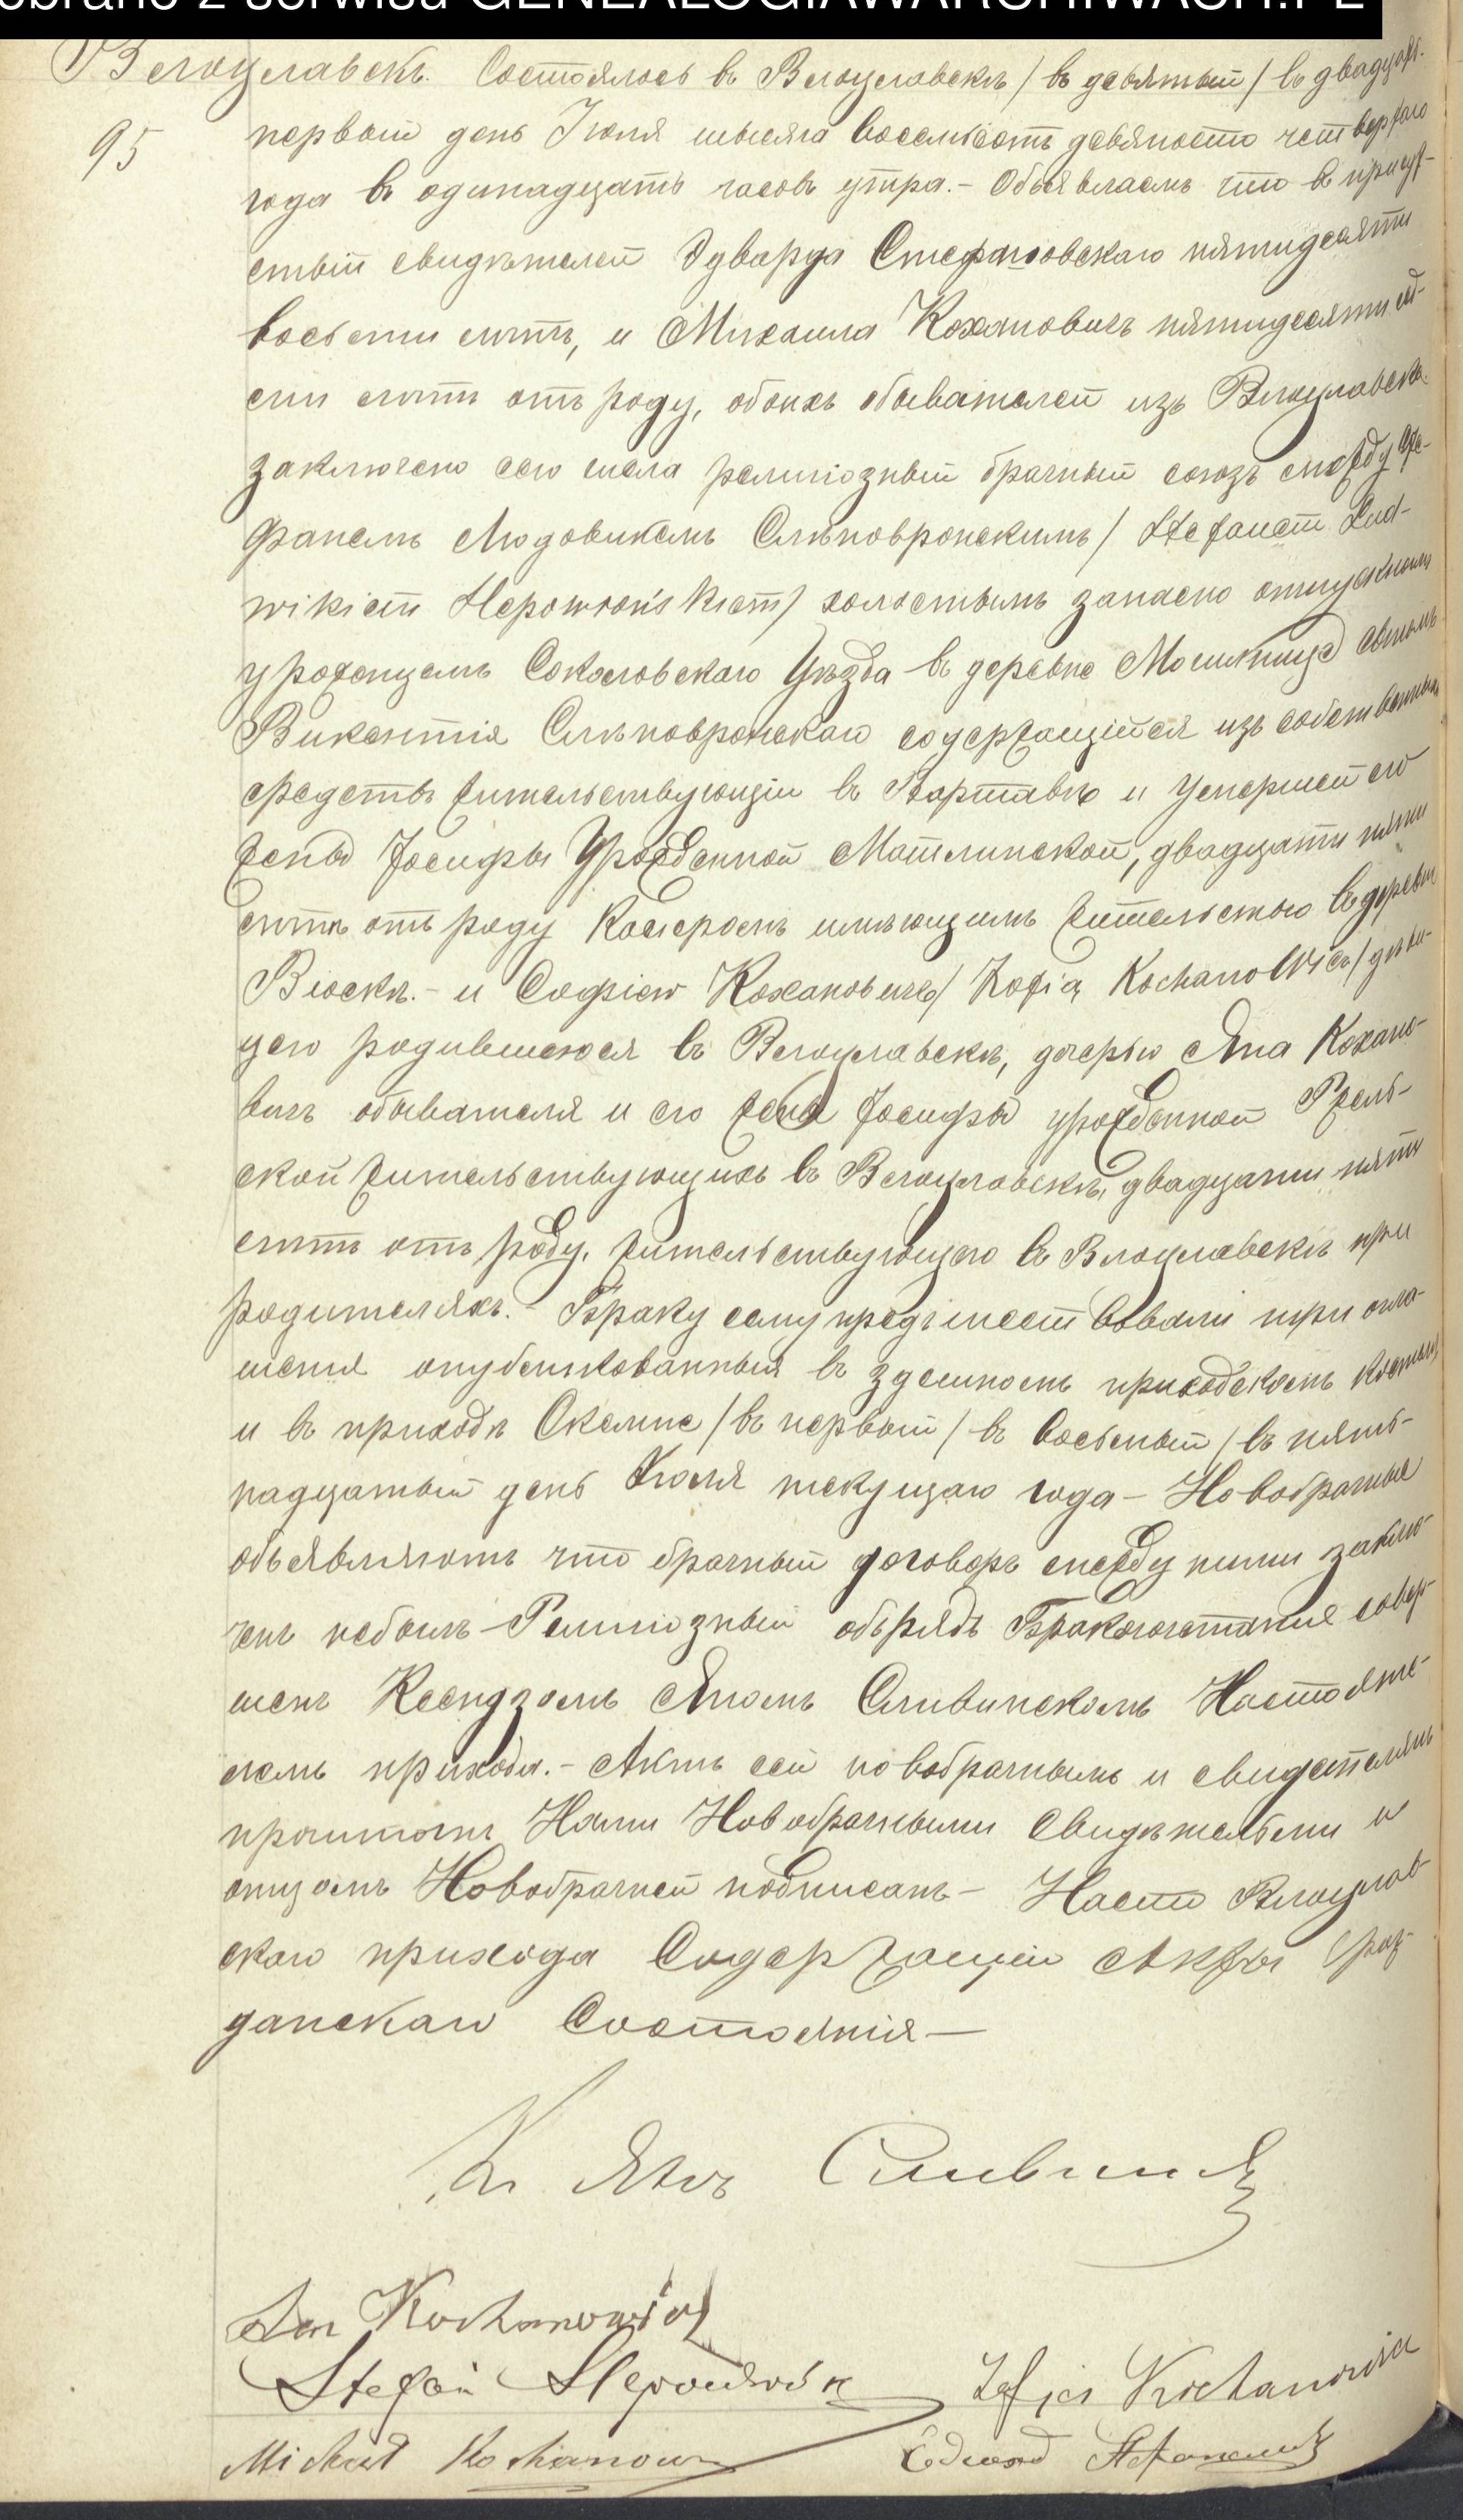 obrano z serwisu GENEALOGIAWARCHIWACH.PL
Влоцлавскъ. Состоялось въ Влоцлавскѣ / въ девятый / въ двадцать
95
первый день Іюля тысяча восемьсотъ девяносто четвертаго
года въ одинадцать часовъ утра. - Объявляемъ что въ присут-
ствіи свидѣтелей Эдварда Стефановскаго пятидесяти
восьми лѣтъ, и Михаила Кохановичъ пятидесяти
лѣтъ отъ роду, обоихъ обывателей изъ Влоцлавска
заключено сего числа религіозный брачный союзъ между Сте-
фаномъ Людовикомъ Слѣповронскимъ / Stefanem Lud-
wikiem Ślepowrońskiem / холостымъ запасно отпускнымъ
урожонцемъ Соколовскаго Уѣзда въ деревне сыномъ
Викентія Слѣповронскаго содержащійся изъ собственныхъ
средствъ жительствующій въ Варшавѣ и Умершей его
жены Іосифы Урожденной двадцати пяти
лѣтъ отъ роду имѣющимъ жительство въ деревни
и Софіею Кохановичъ / Zofią Kochanowicz / дѣви-
цею родившеюся въ Влоцлавскѣ, дочерью Яна Кохано-
вичъ обывателя и его жены Іосифы урожденной
ской жительствующихъ въ Влоцлавскѣ, двадцати пяти
лѣтъ отъ роду, жительствующею въ Влоцлавскѣ при
родителяхъ. - Браку сему предшествовали три огла-
шенія опубликованныя въ здешномъ приходскомъ костелѣ
и въ приходѣ Скемпе / въ первый / въ восьмый / въ пят-
надцатый день Іюля текущаго года - Новобрачные
объявляютъ что брачный договоръ между ними заклю-
ченъ небылъ - Религіозный обрядъ Бракосочетанія совер-
шенъ Ксендзомъ Яномъ Сливинскомъ Настояте-
лемъ прихода. - Актъ сей новобрачнымъ и свидетелямъ
прочитанъ Нами Новобрачными Свидѣтельми и
отцомъ Новобрачней подписанъ - Насто Влоцлав-
скаго прихода Содержащій Акты Граж-
данскаго Состоянія —
К Янъ
Jan Kochanowicz
Stefan Zofja Kochanowicz
Michał Kochanow Edward